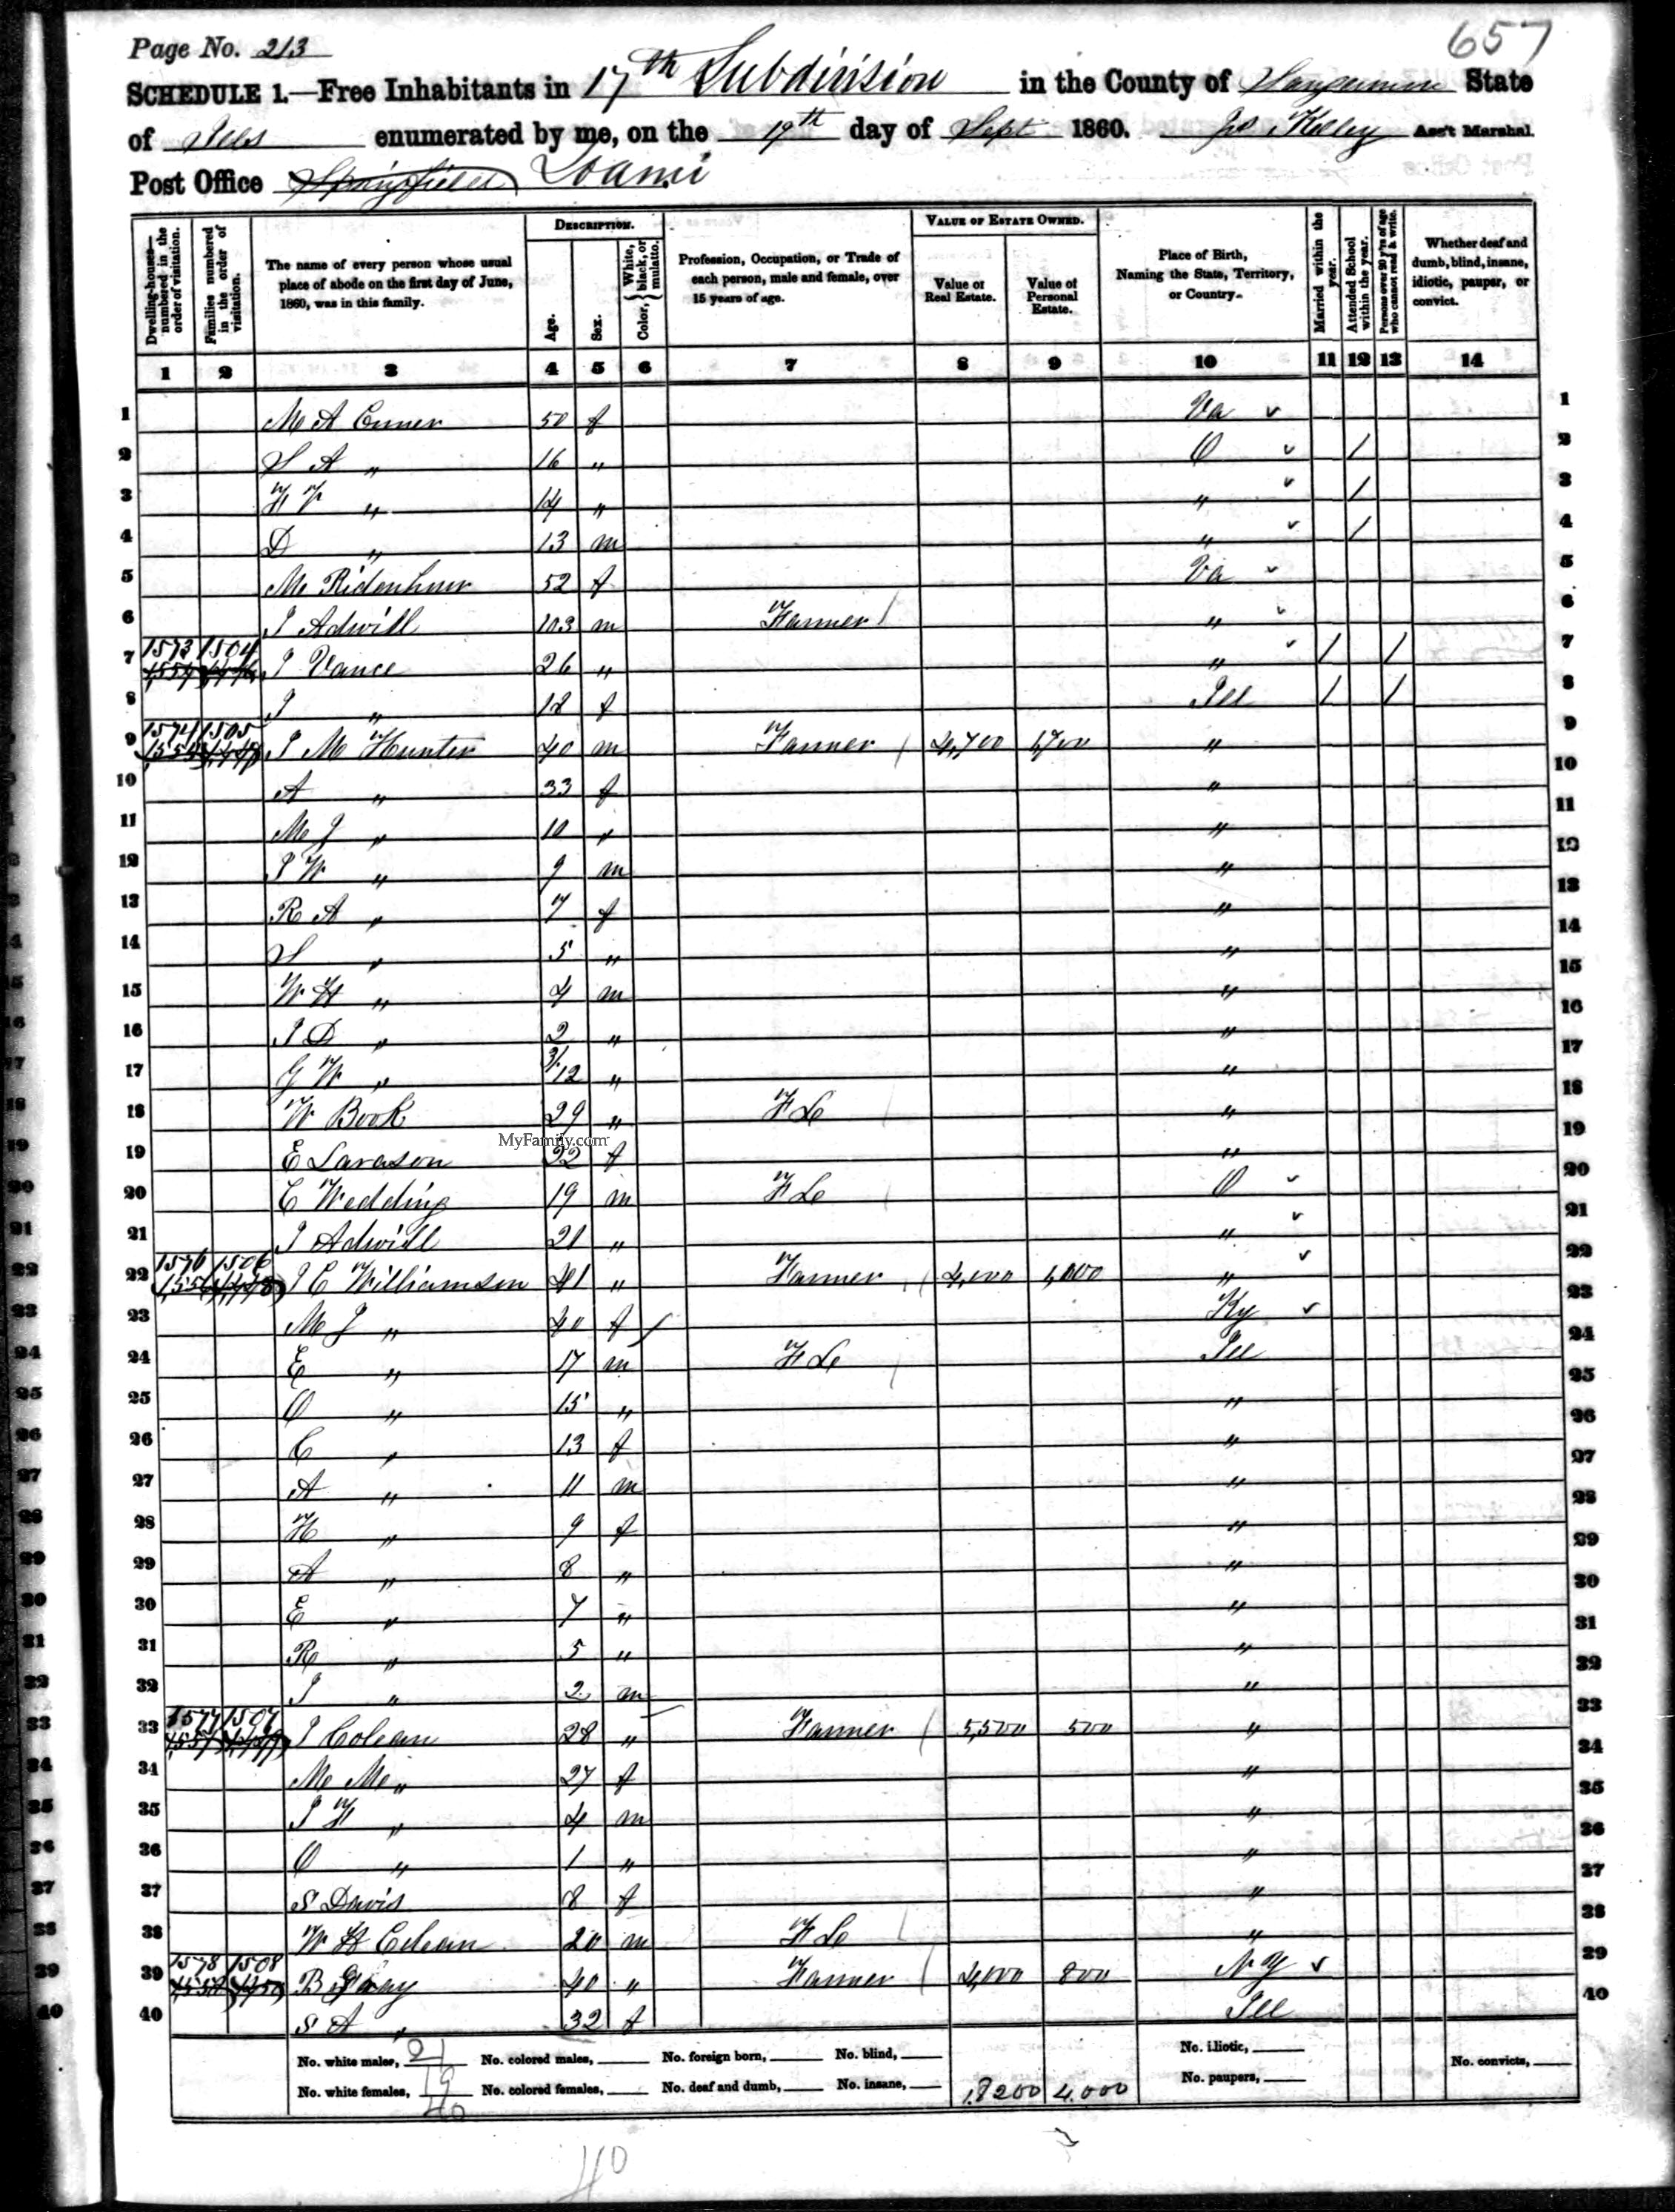 Page No. 213
657
SCHEDULE 1.—Free Inhabitants in 17th Subdivision in the County of Sangamon State
of Ills enumerated by me, on the 19th day of Sept 1860. Jo Kelley Ass't Marshal.
Post Office Springfield Loami
Dwelling-houses—numbered in the order of visitation.
Families numbered in the order of visitation.
The name of every person whose usual place of abode on the first day of June, 1860, was in this family.
DESCRIPTION.
Age.
Sex.
Color, { White, black, or mulatto.
Profession, Occupation, or Trade of each person, male and female, over 15 years of age.
VALUE OF ESTATE OWNED.
Value of Real Estate.
Value of Personal Estate.
Place of Birth, Naming the State, Territory, or Country.
Married within the year.
Attended School within the year.
Persons over 20 y'rs of age who cannot read & write.
Whether deaf and dumb, blind, insane, idiotic, pauper, or convict.
1 2 3 4 5 6 7 8 9 10 11 12 13 14
1 M A 50 f Va 1
2 S A " 16 " O / 2
3 " 14 " " / 3
4 D " 13 m " / 4
5 M Ridenhour 52 f Va 5
6 J Adwill m Farmer " 6
7 1573 1504 J Vance 26 " " / / 7
8 J " 18 f Ill / / 8
9 1574 1505 J M Hunter 40 m Farmer 4,700 1,700 " 9
10 A " 33 f " 10
11 M J " 10 " " 11
12 J W " 9 m " 12
13 R A " 7 f " 13
14 S " 5 " " 14
15 W H " 4 m " 15
16 J D " 2 " " 16
17 G W " 3/12 " " 17
18 W Book 29 " F L " 18
MyFamily.com
19 E Lawson 22 f " 19
20 C Wedding 19 m F L O 20
21 J Adwill 21 " " 21
22 1576 1506 J C Williamson 41 " Farmer 4,000 1,000 " 22
23 M J " 40 f Ky 23
24 E " 17 m F L Ill 24
25 O " 15 " " 25
26 C " 13 f " 26
27 A " 11 m " 27
28 H " 9 f " 28
29 A " 8 " " 29
30 E " 7 " " 30
31 R " 5 " " 31
32 J " 2 m " 32
33 1577 1507 J Colean 28 " Farmer 5,500 500 " 33
34 M M " 27 f " 34
35 J F " 4 m " 35
36 O " 1 " " 36
37 S Davis 8 f " 37
38 W H Colean 20 m F L " 38
39 1578 1508 B Gray 40 " Farmer 4,000 800 N Y 39
40 S A " 32 f Ill 40
No. white males, 21 No. colored males, No. foreign born, No. blind, No. idiotic,
No. convicts,
No. white females, 19 No. colored females, No. deaf and dumb, No. insane, 18200 4,000 No. paupers,
40
40